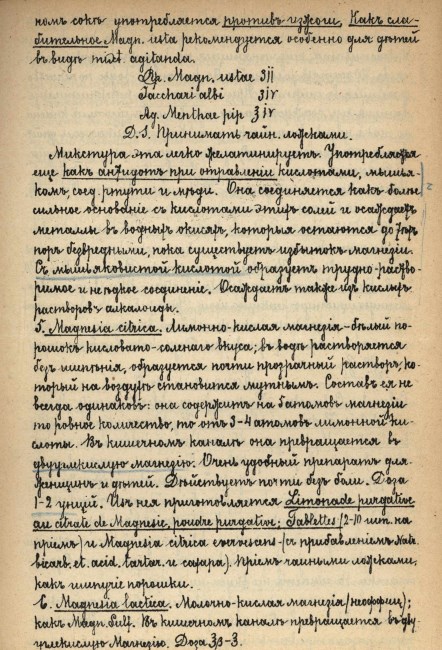 номъ сокѣ употребляется противъ изжоги, Какъ сла-
бительное Magn. usta рекомендуется особенно для дѣтей
въ видѣ mixt. agitanda.
Rp. Magn. ustae ʒij
Sacchari albi ʒiv
Aq. Menthae pip ℥iv
D.S. Принимать чайн. ложками.
Микстура эта легко желатинируетъ. Употребляется
еще какъ антидотъ при отравленіи кислотами, мышья-
комъ, соед. ртути и мѣди. Она соединяется какъ болѣе
сильное основаніе съ кислотами этихъ солей и осаждаетъ
металлы въ водныхъ окисяхъ, которыя остаются до тѣхъ
поръ безвредными, пока существуетъ избытокъ магнезіи.
Съ мышьяковистой кислотой образуетъ трудно-раство-
римое и неѣдкое соединеніе. Осаждаетъ также изъ кислыхъ
растворовъ алкалоиды.
Magnesia citrica. Лимонно-кислая магнезія-бѣлый по-
рошокъ кисловато-соленаго вкуса; въ водѣ растворяется
безъ шипѣнія, образуется почти прозрачный растворъ, ко-
торый на воздухѣ становится мутнымъ. Составъ ея не
всегда одинаковъ: она содержитъ на 6 атомовъ магнезіи
то ровное количество, то отъ 3-4 атомовъ лимонной ки-
слоты. Въ кишечномъ каналѣ она превращается въ
двууглекислую магнезію. Очень удобный препаратъ для
женщинъ и дѣтей. Дѣйствуетъ почти безъ боли. Доза
1-2 унцій. Изъ нея приготовляется Limonade purgative
au citrate de Magnesie, poudre purgative; Tablettes /2-10 шт. на
пріемъ/ и Magnesia citrica effervescens-/съ прибавленіемъ Natr.
bicarb. et. acid. tartar. и сахара/. Пріемъ чайными ложками,
какъ шипучіе порошки.
Magnesia lactica. Молочно-кислая магнезія
какъ Magn. Sulf. Въ кишечномъ каналѣ превращается въ дву-
углекислую Магнезію. Доза ʒβ-3.